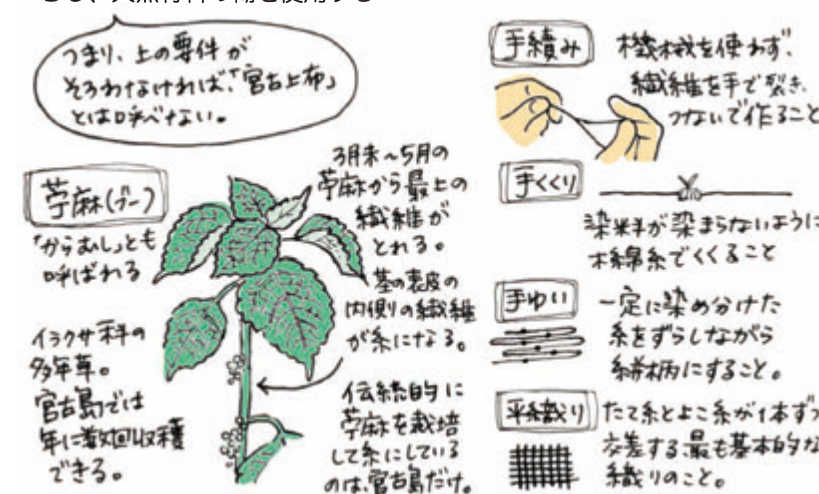 つまり、上の要件が
そろわなければ、「宮古上布」
とは呼べない。
苧麻(ブー)
「からむし」とも
呼ばれる
イラクサ科の
多年草。
宮古島では
年に数回収穫
できる。
3月末～5月の
苧麻から最上の
繊維が
とれる。
茎の表皮の
内側の繊維
が糸になる。
伝統的に
苧麻を栽培
して糸にしている
のは、宮古島だけ。
手績み
機械を使わず、
繊維を手で裂き、
つないで作ること
手くくり
染料が染まらないように
木綿糸でくくること
手ゆい
一定に染め分けた
糸をずらしながら
絣柄にすること。
平織り
たて糸とよこ糸が1本ずつ
交差する最も基本的な
織りのこと。